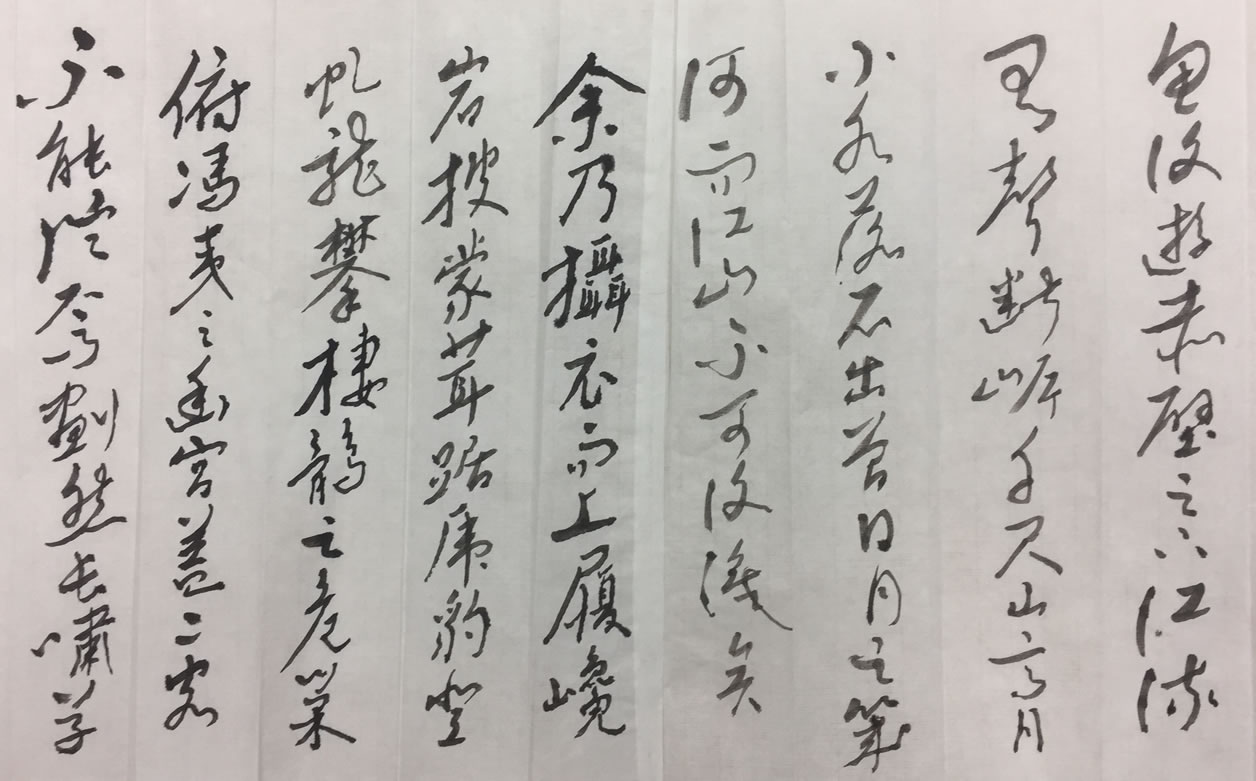 魚復遊赤壁之下江流
有聲断岸千尺山高月
小水落石出曾日月之幾
何而江山不可復識矣
余乃攝衣而上履巉
岩披蒙茸踞虎豹登
虬龍攀棲鶻之危巢
俯馮夷之幽宮蓋二客
不能從焉劃然長嘯草